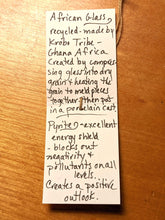 African Glass,
recycled - made by
Krobo Tribe -
Ghana Africa
Created by compres-
sing glass into dry
grain & heating the
grain to meld pieces
together & then put
in a porcelain cast,
Pyrite - excellent
energy shield
- blocks out
negativity &
pollutants on all
levels.
Creates a positive
outlook.